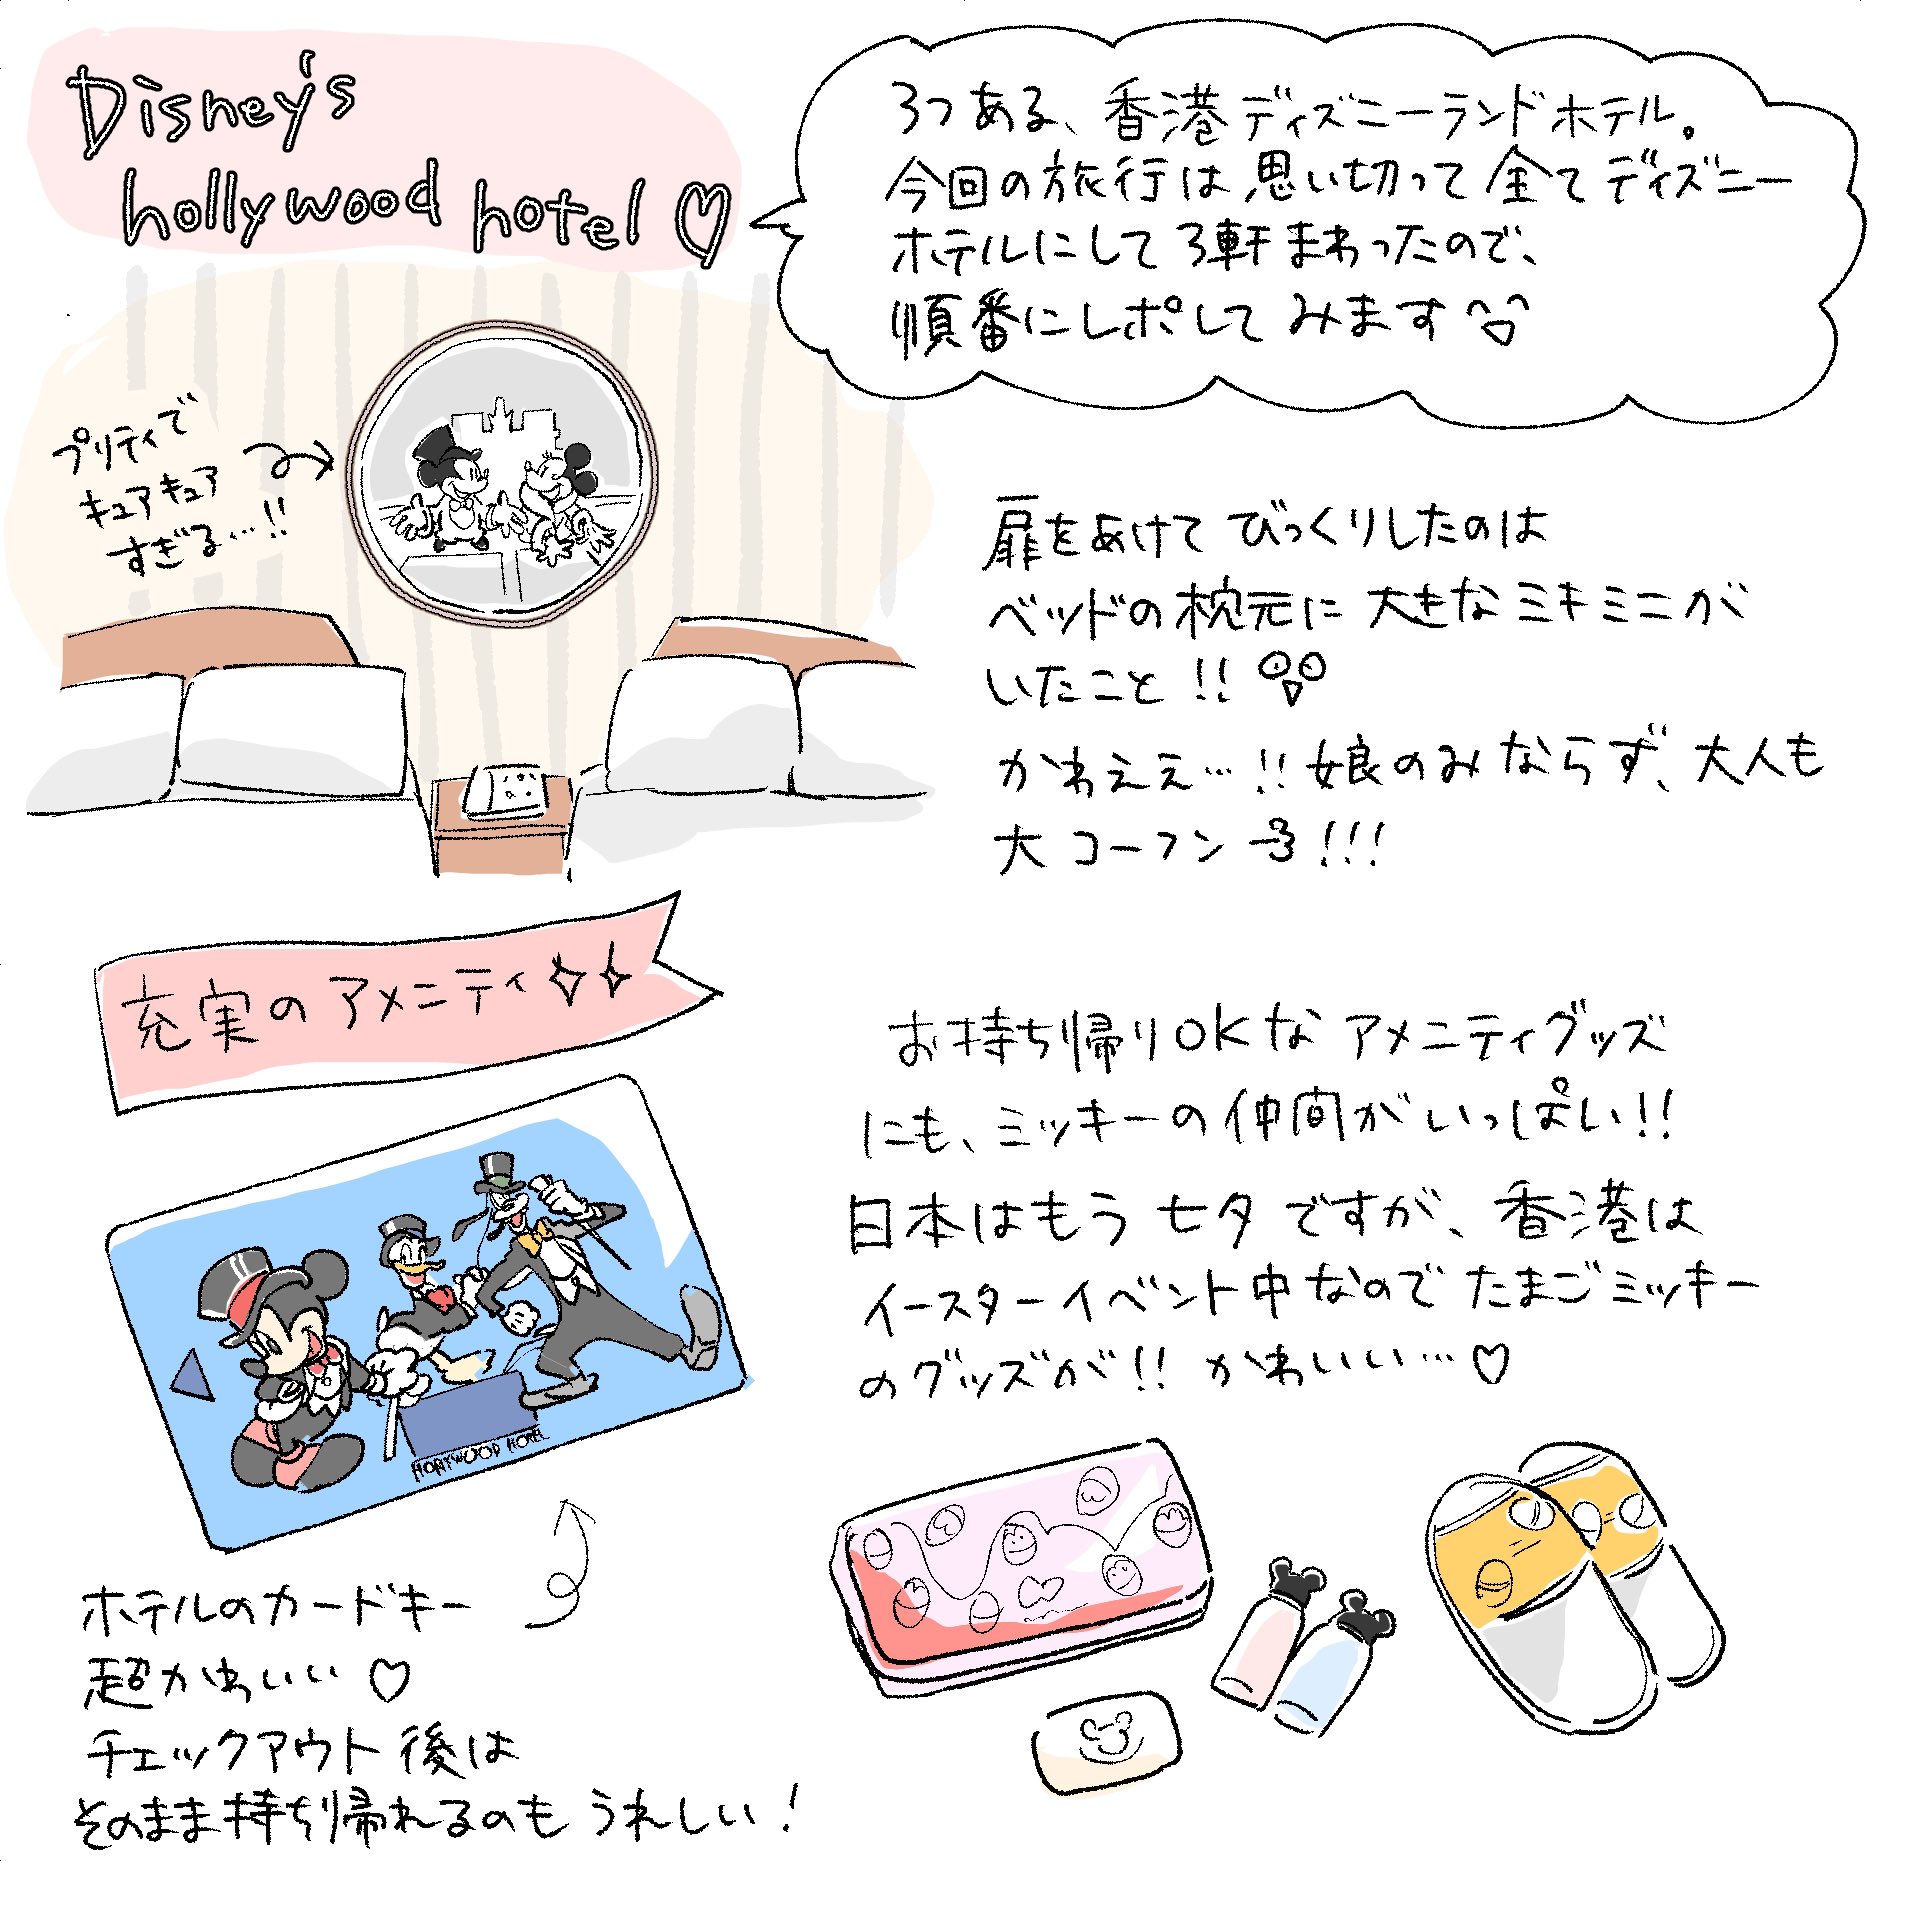 Disney's
hollywood hotel ♡
3つある、香港ディズニーランドホテル。
今回の旅行は思い切って全てディズニー
ホテルにして3軒まわったので、
順番にレポしてみます
プリティで
キュアキュア
すぎる…!!
扉をあけてびっくりしたのは
ベッドの枕元に大きなミキミニが
いたこと!!
かわええ…!!娘のみならず、大人も
大コーフン!!!
充実のアメニティ
お持ち帰りOKなアメニティグッズ
にも、ミッキーの仲間がいっぱい!!
日本はもう七夕ですが、香港は
イースターイベント中なのでたまごミッキー
のグッズが!!かわいい…♡
HOLLYWOOD HOTEL
ホテルのカードキー
超かわいい♡
チェックアウト後は
そのまま持ち帰れるのもうれしい!